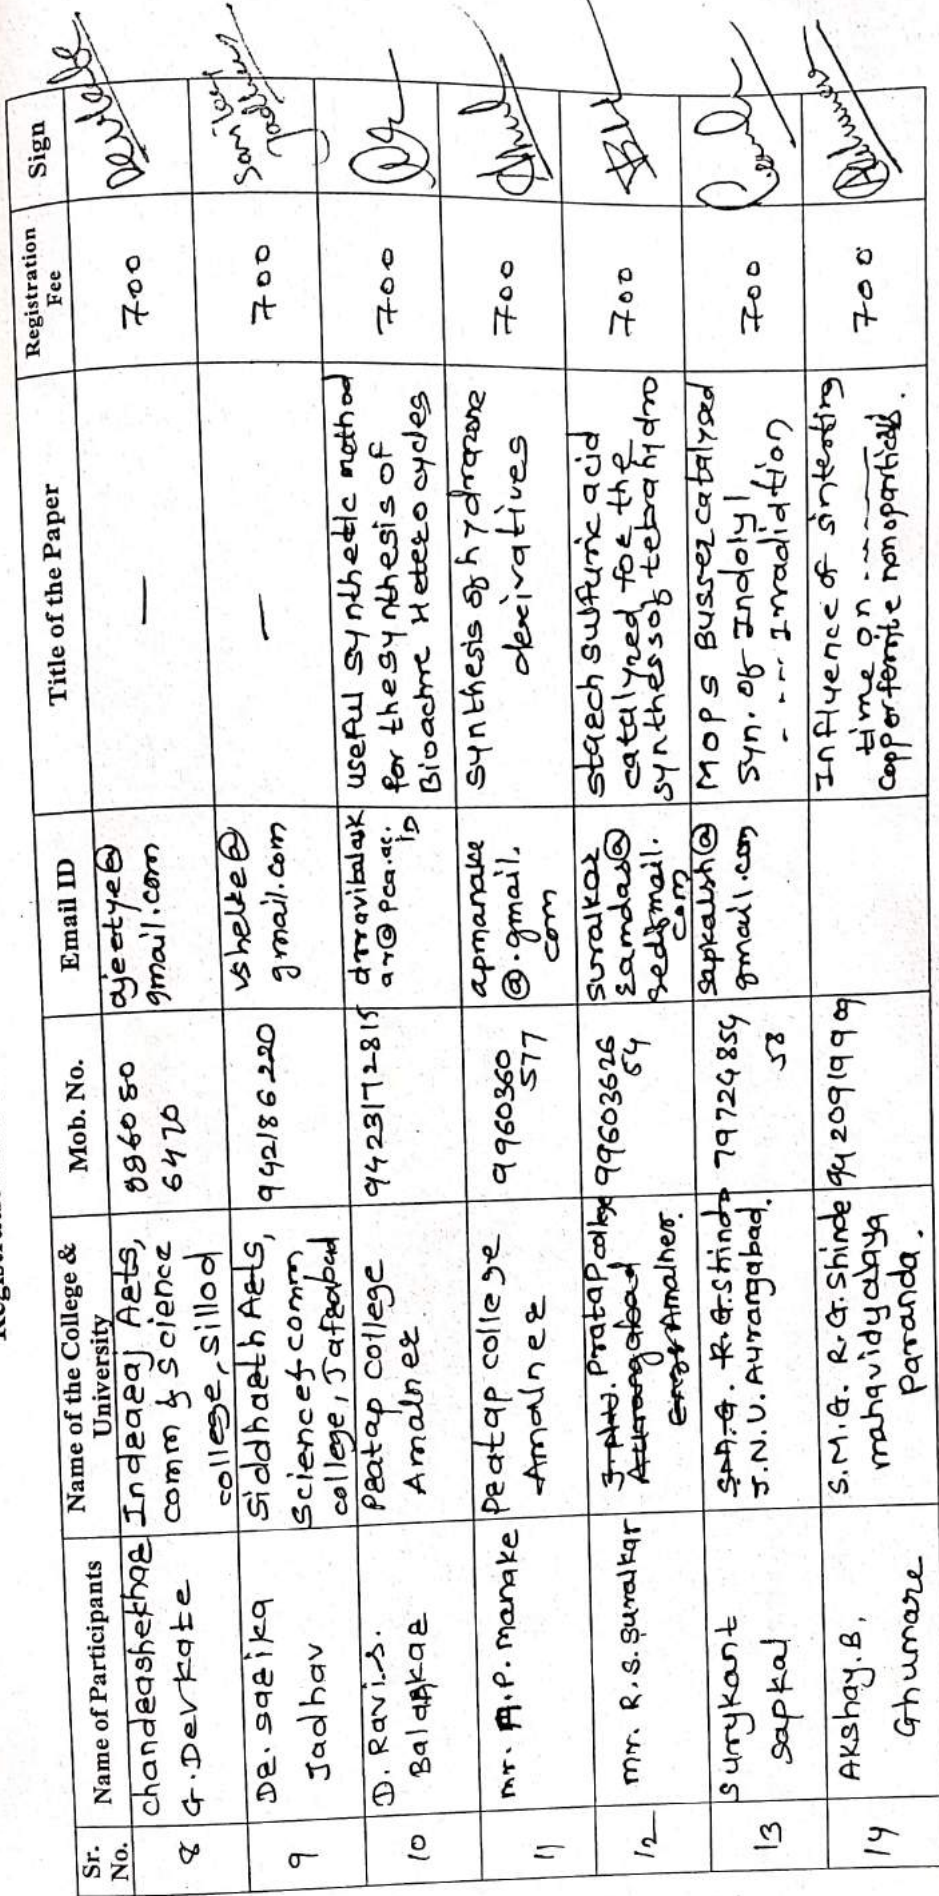 Sr. No.
Name of Participants
Name of the College & University
Mob. No.
Email ID
Title of the Paper
Registration Fee
Sign
8
chandrashekhar
G. Devkate
Indraraj Arts,
comm & science
college, Sillod
886080
6470
ajeetye@
gmail.com
—
700
9
Dr. sarika
Jadhav
Siddharth Arts,
Science & comm
college, Jafrabad
9421862 20
vshelke@
gmail.com
—
700
10
D. Ravi.S.
Balaskar
Pratap college
Amalner
9423172815
drravibalask
ar@pca.ac.
in
useful synthetic method
for the synthesis of
Bioactive Heterocycles
700
11
mr. A.P. manake
Pratap college
Amalner
9960360
577
apmanake
@.gmail.
com
synthesis of hydrazone
derivatives
700
12
mr. R.S. suralkar
Pratap college
Amalner.
99603626
54
suralkar
ramdas@
rediffmail.
com
starch sulfuric acid
catalyzed for the
synthess of tetrahydro
700
13
surykant
sapkal
R.G. Shinde
J.N.U. Aurangabad.
79724854
58
sapkalsh@
gmail.com
MOPS Busser catalysed
syn. of Indolyl
- --- irradidtion
700
14
Akshay.B.
Ghumare
S.M.G. R.G. Shinde
mahavidyalaya
Paranda.
9420919999
Influence of sintering
time on ------
Copperferrite nonoparticals.
700